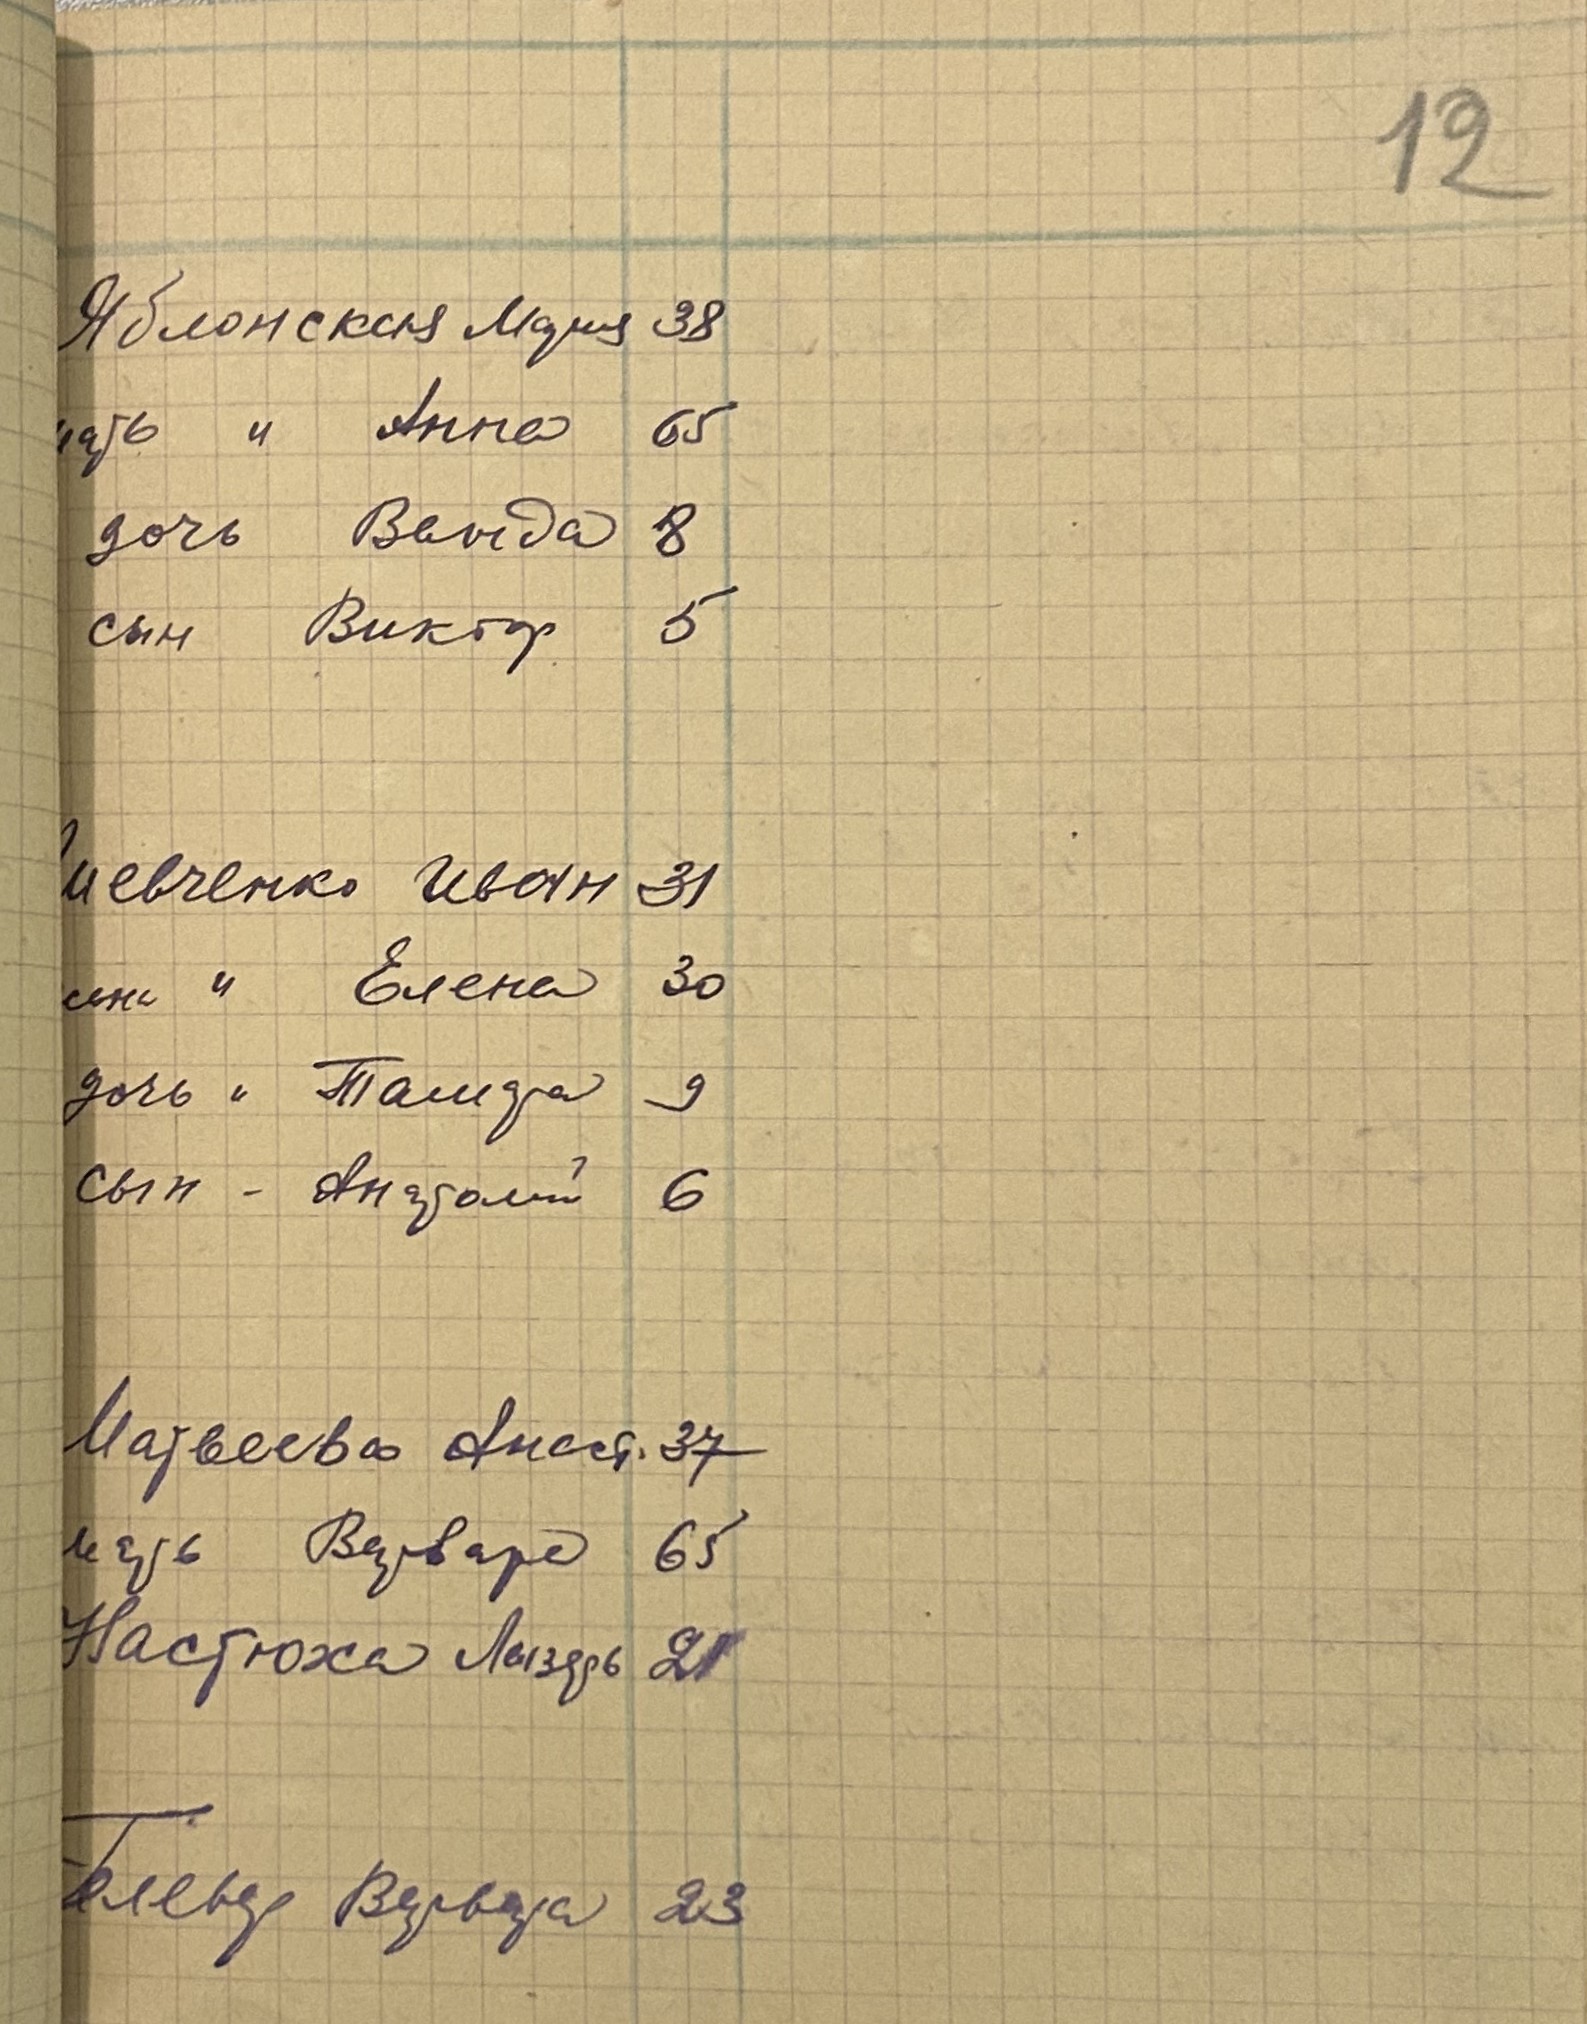 12
Яблонская Мария 38
мать " Анна 65
дочь Ванда 8
сын Виктор 5
Шевченко Иван 31
жена " Елена 30
дочь " Тамара 9
сын - Анатолий 6
Матвеева Анаст. 37
мать Варвара 65
Настюха 21
Варвара 23